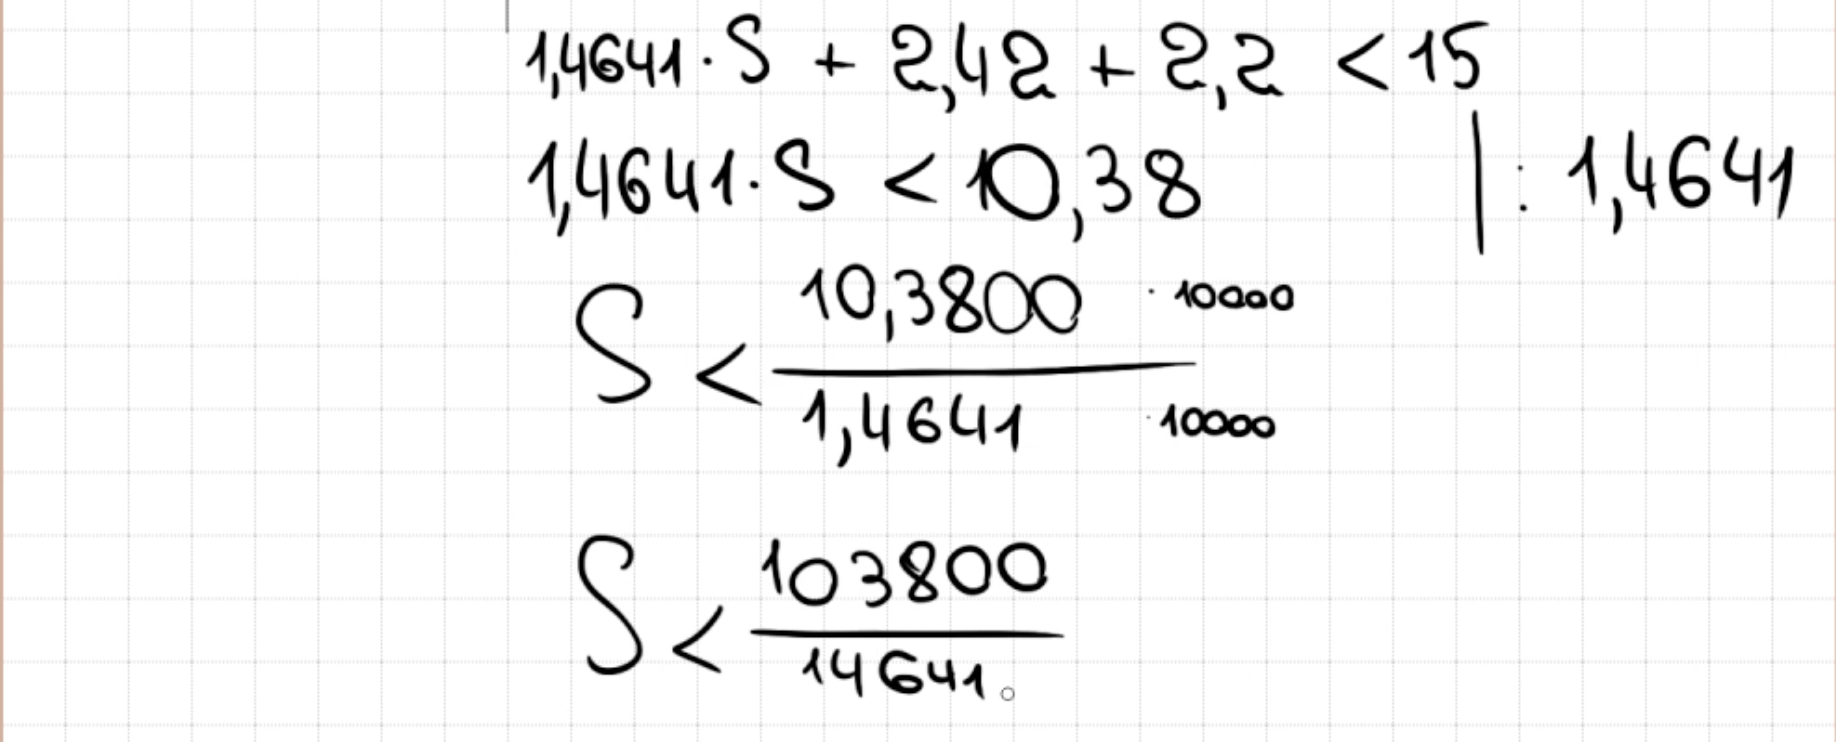 1,4641 · S + 2,42 + 2,2 < 15
1,4641 · S < 10,38 | : 1,4641
S < 10,3800 · 10000 / 1,4641 · 10000
S < 103800 / 14641.